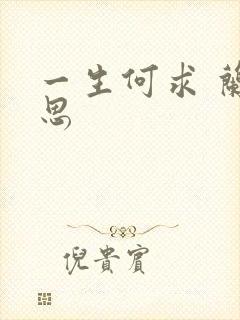 一生何求 蘭
思
倪貴賓